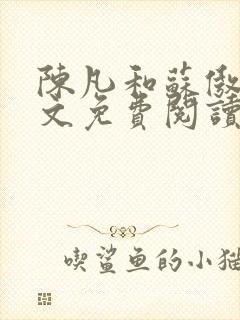 陳凡和蘇傲
文免費閱讀
喫鯊鱼的小猫